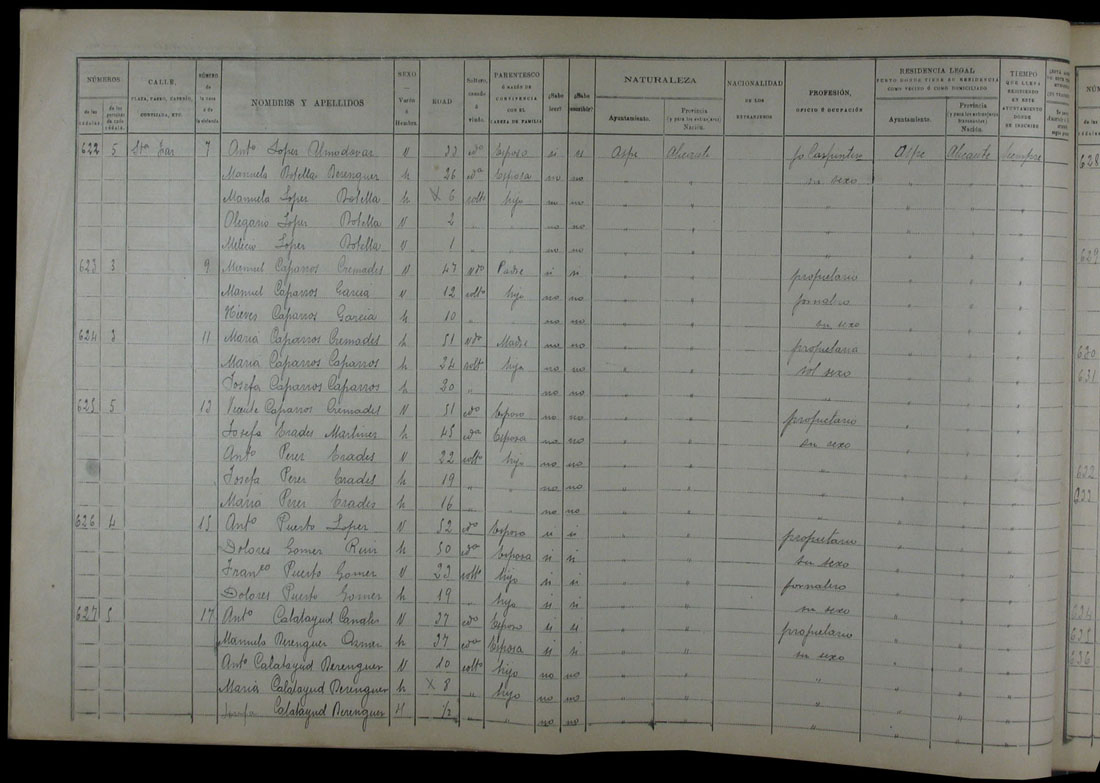 NÚMEROS
de las cédulas.
de las personas de cada cédula.
CALLE,
PLAZA, PASEO, PARTIDO,
NÚMERO de la casa ó de la vivienda.
NOMBRES Y APELLIDOS
SEXO — Varón Hembra.
EDAD
Soltero, casado ó viudo.
PARENTESCO Ó RAZÓN DE CONVIVENCIA CON EL CABEZA DE FAMILIA
¿Sabe leer?
¿Sabe escribir?
NATURALEZA
Ayuntamiento.
Provincia (y para los extranjeros) Nación.
NACIONALIDAD DE LOS EXTRANJEROS
PROFESIÓN, OFICIO Ú OCUPACIÓN
RESIDENCIA LEGAL
PUNTO DONDE TIENE SU RESIDENCIA COMO VECINO Ó COMO DOMICILIADO
Ayuntamiento.
Provincia (y para los extranjeros transeuntes) Nación.
TIEMPO QUE LLEVA RESIDIENDO EN ESTE AYUNTAMIENTO DONDE SE INSCRIBE
622 5 7 Antº Loper Almodovar V cdº Esposo si si Aspe Alicante Carpintero Aspe Alicante siempre
Manuela Botella Berenguer h 26 cdª Esposa no no su sexo
Manuela Loper Botella h 6 soltª hija no no
Olegario Loper Botella V 2 " " no no
Melecio Loper Botella V 1 " " no no
623 3 9 Manuel Caparros Cremades V 47 vdº Padre si si propietario
Manuel Caparros Garcia V 12 soltº hijo no no jornalero
Nieves Caparros Garcia h 10 " " no no su sexo
624 3 11 Maria Caparros Cremades h 51 vdª Madre no no propietaria
Maria Caparros Caparros h 24 soltª hija no no sexo
Josefa Caparros Caparros h 20 " no no "
625 5 13 Vicente Caparros Cremades V 51 cdº Esposo no no propietario
Josefa Erades Martiner h 45 cdª Esposa no no su sexo
Antº Perer Erades V 22 soltº hijo no no "
Josefa Perer Erades h 19 " " no no "
Maria Perer Erades h 16 " " no no "
626 4 15 Antº Puerto Loper V 52 cdº Esposo si si propietario
Dolores Gomer Ruir h 50 cdª Esposa si si su sexo
Franco Puerto Gomer V 23 soltº hijo si si jornalero
Dolores Puerto Gomer h 19 " hija si si su sexo
627 5 17 Antº Calatayud Canales V 37 cdº Esposo si si propietario
Manuela Berenguer h 37 cdª Esposa si si su sexo
Antº Calatayud Berenguer V 10 soltº hijo no no "
Maria Calatayud Berenguer h 8 " hija no no "
Josefa Calatayud Berenguer H 1/2 " " no no "
628
629
630
631
634
635
636